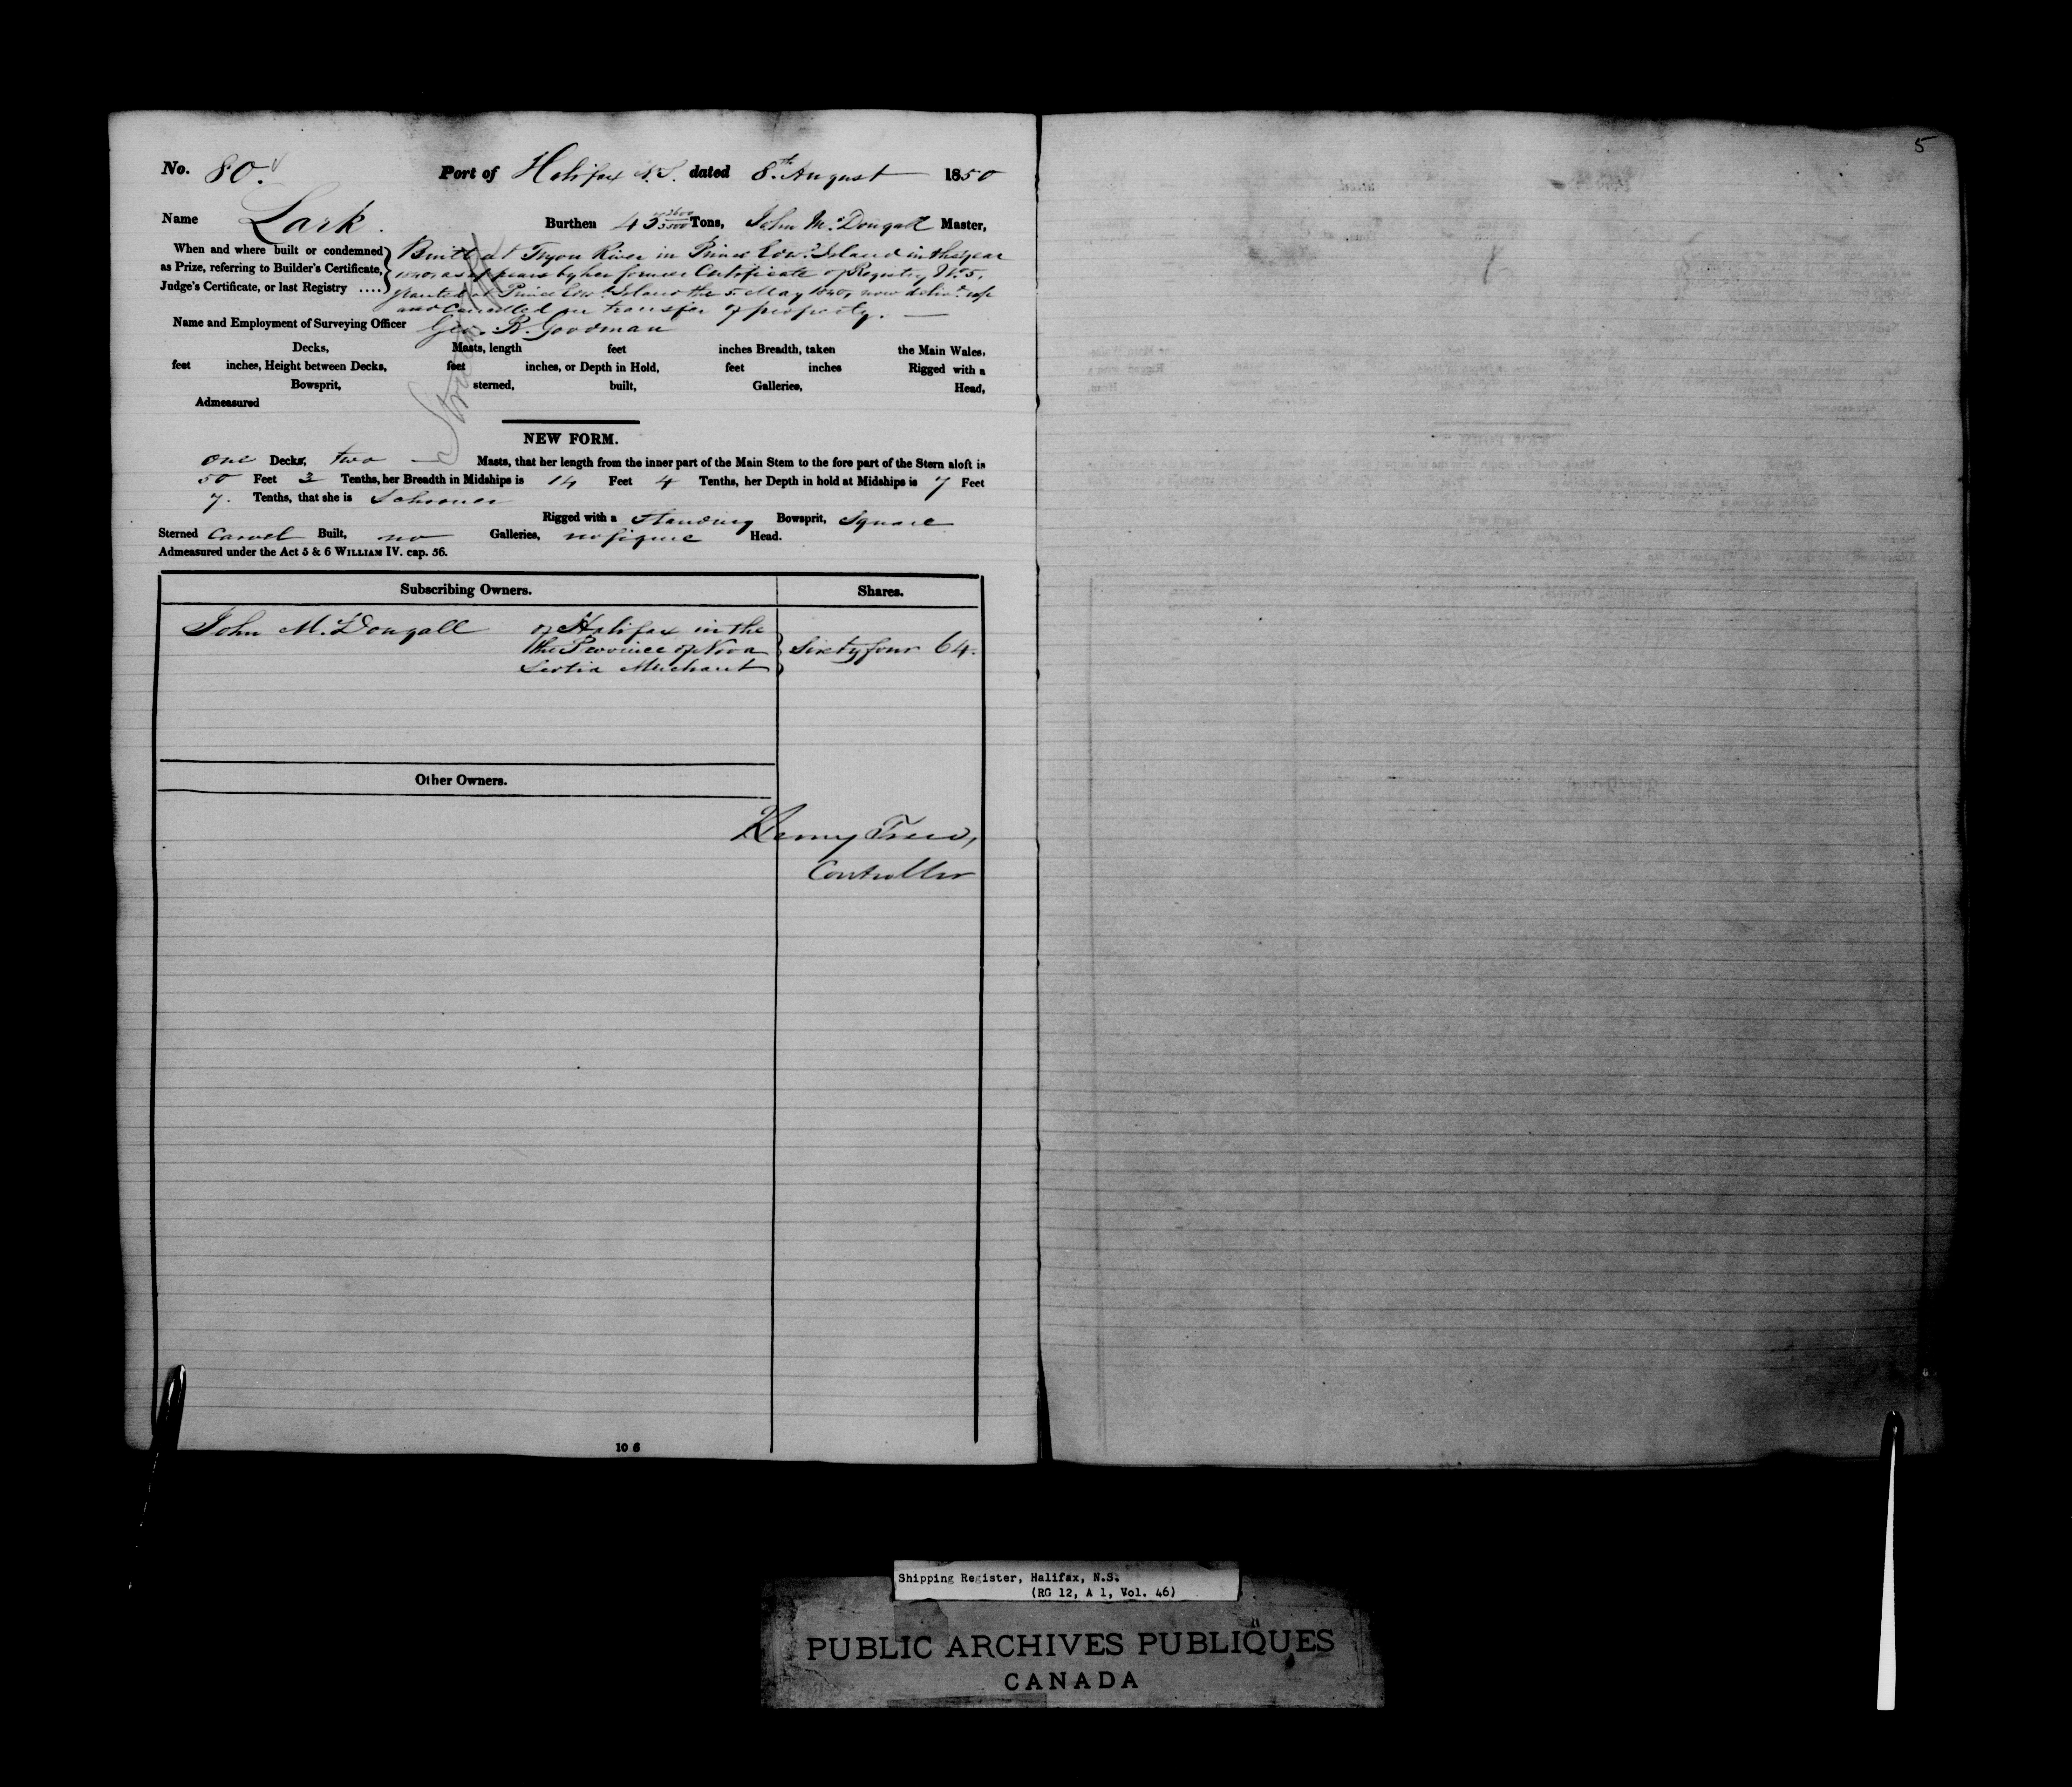 5
No. 80. Port of Halifax N.S. dated 8th August 1850
Name Lark. Burthen 43 Tons, John McDougall Master,
When and where built or condemned as Prize, referring to Builder's Certificate, Judge's Certificate, or last Registry ....
Built at Tryon River in Prince Edwd. Island in the year
1840, as appears by her former Certificate of Registry No. 5,
granted at Prince Edwd. Island the 5 May 1840, now delivd. up
and Cancelled on transfer of property.
Name and Employment of Surveying Officer Geo. R. Goodman
Decks, Masts, length feet inches Breadth, taken the Main Wales,
feet inches, Height between Decks, feet inches, or Depth in Hold, feet inches Rigged with a
Bowsprit, sterned, built, Galleries, Head,
Admeasured
NEW FORM.
one Decks, two Masts, that her length from the inner part of the Main Stem to the fore part of the Stern aloft is
50 Feet 3 Tenths, her Breadth in Midships is 14 Feet 4 Tenths, her Depth in hold at Midships is 7 Feet
7. Tenths, that she is Schooner
Rigged with a Standing Bowsprit, Square
Sterned Carvel Built, no Galleries, no figure Head.
Admeasured under the Act 5 & 6 WILLIAM IV. cap. 56.
Subscribing Owners. Shares.
John McDougall of Halifax in the
the Province of Nova Sixty four 64.
Scotia Merchant
Other Owners.
Henry Trew,
Controller
10 6
Shipping Register, Halifax, N.S.
(RG 12, A 1, Vol. 46)
PUBLIC ARCHIVES PUBLIQUES
CANADA